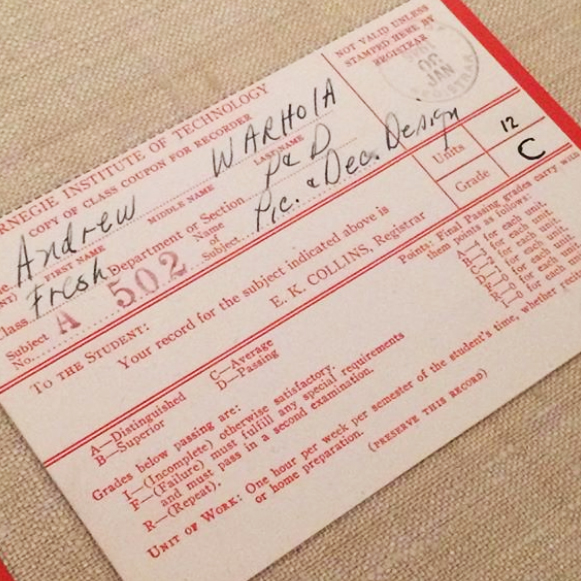 NOT VALID UNLESS
STAMPED HERE BY
REGISTRAR
06
JAN
RNEGIE INSTITUTE OF TECHNOLOGY
COPY OF CLASS COUPON FOR RECORDER
Andrew WARHOlA
FIRST NAME MIDDLE NAME LAST NAME
Class Fresh Department or Section P & D
Subject No. A 502 Name of Subject Pic. & Dec. Design
Units 12
Grade C
TO THE STUDENT:
Your record for the subject indicated above is
E. K. COLLINS, Registrar
A—Distinguished C—Average
B—Superior D—Passing
Grades below passing are:
I—(Incomplete) otherwise satisfactory.
F—(Failure) must fulfill any special requirements
and must pass in a second examination.
R—(Repeat).
Points: Final Passing grades carry
them points as follows:
for each unit.
for each unit.
for each unit.
for each unit.
for each unit.
for each unit.
UNIT OF WORK: One hour per week per semester of the student's time, whether rec
or home preparation.
(PRESERVE THIS RECORD)